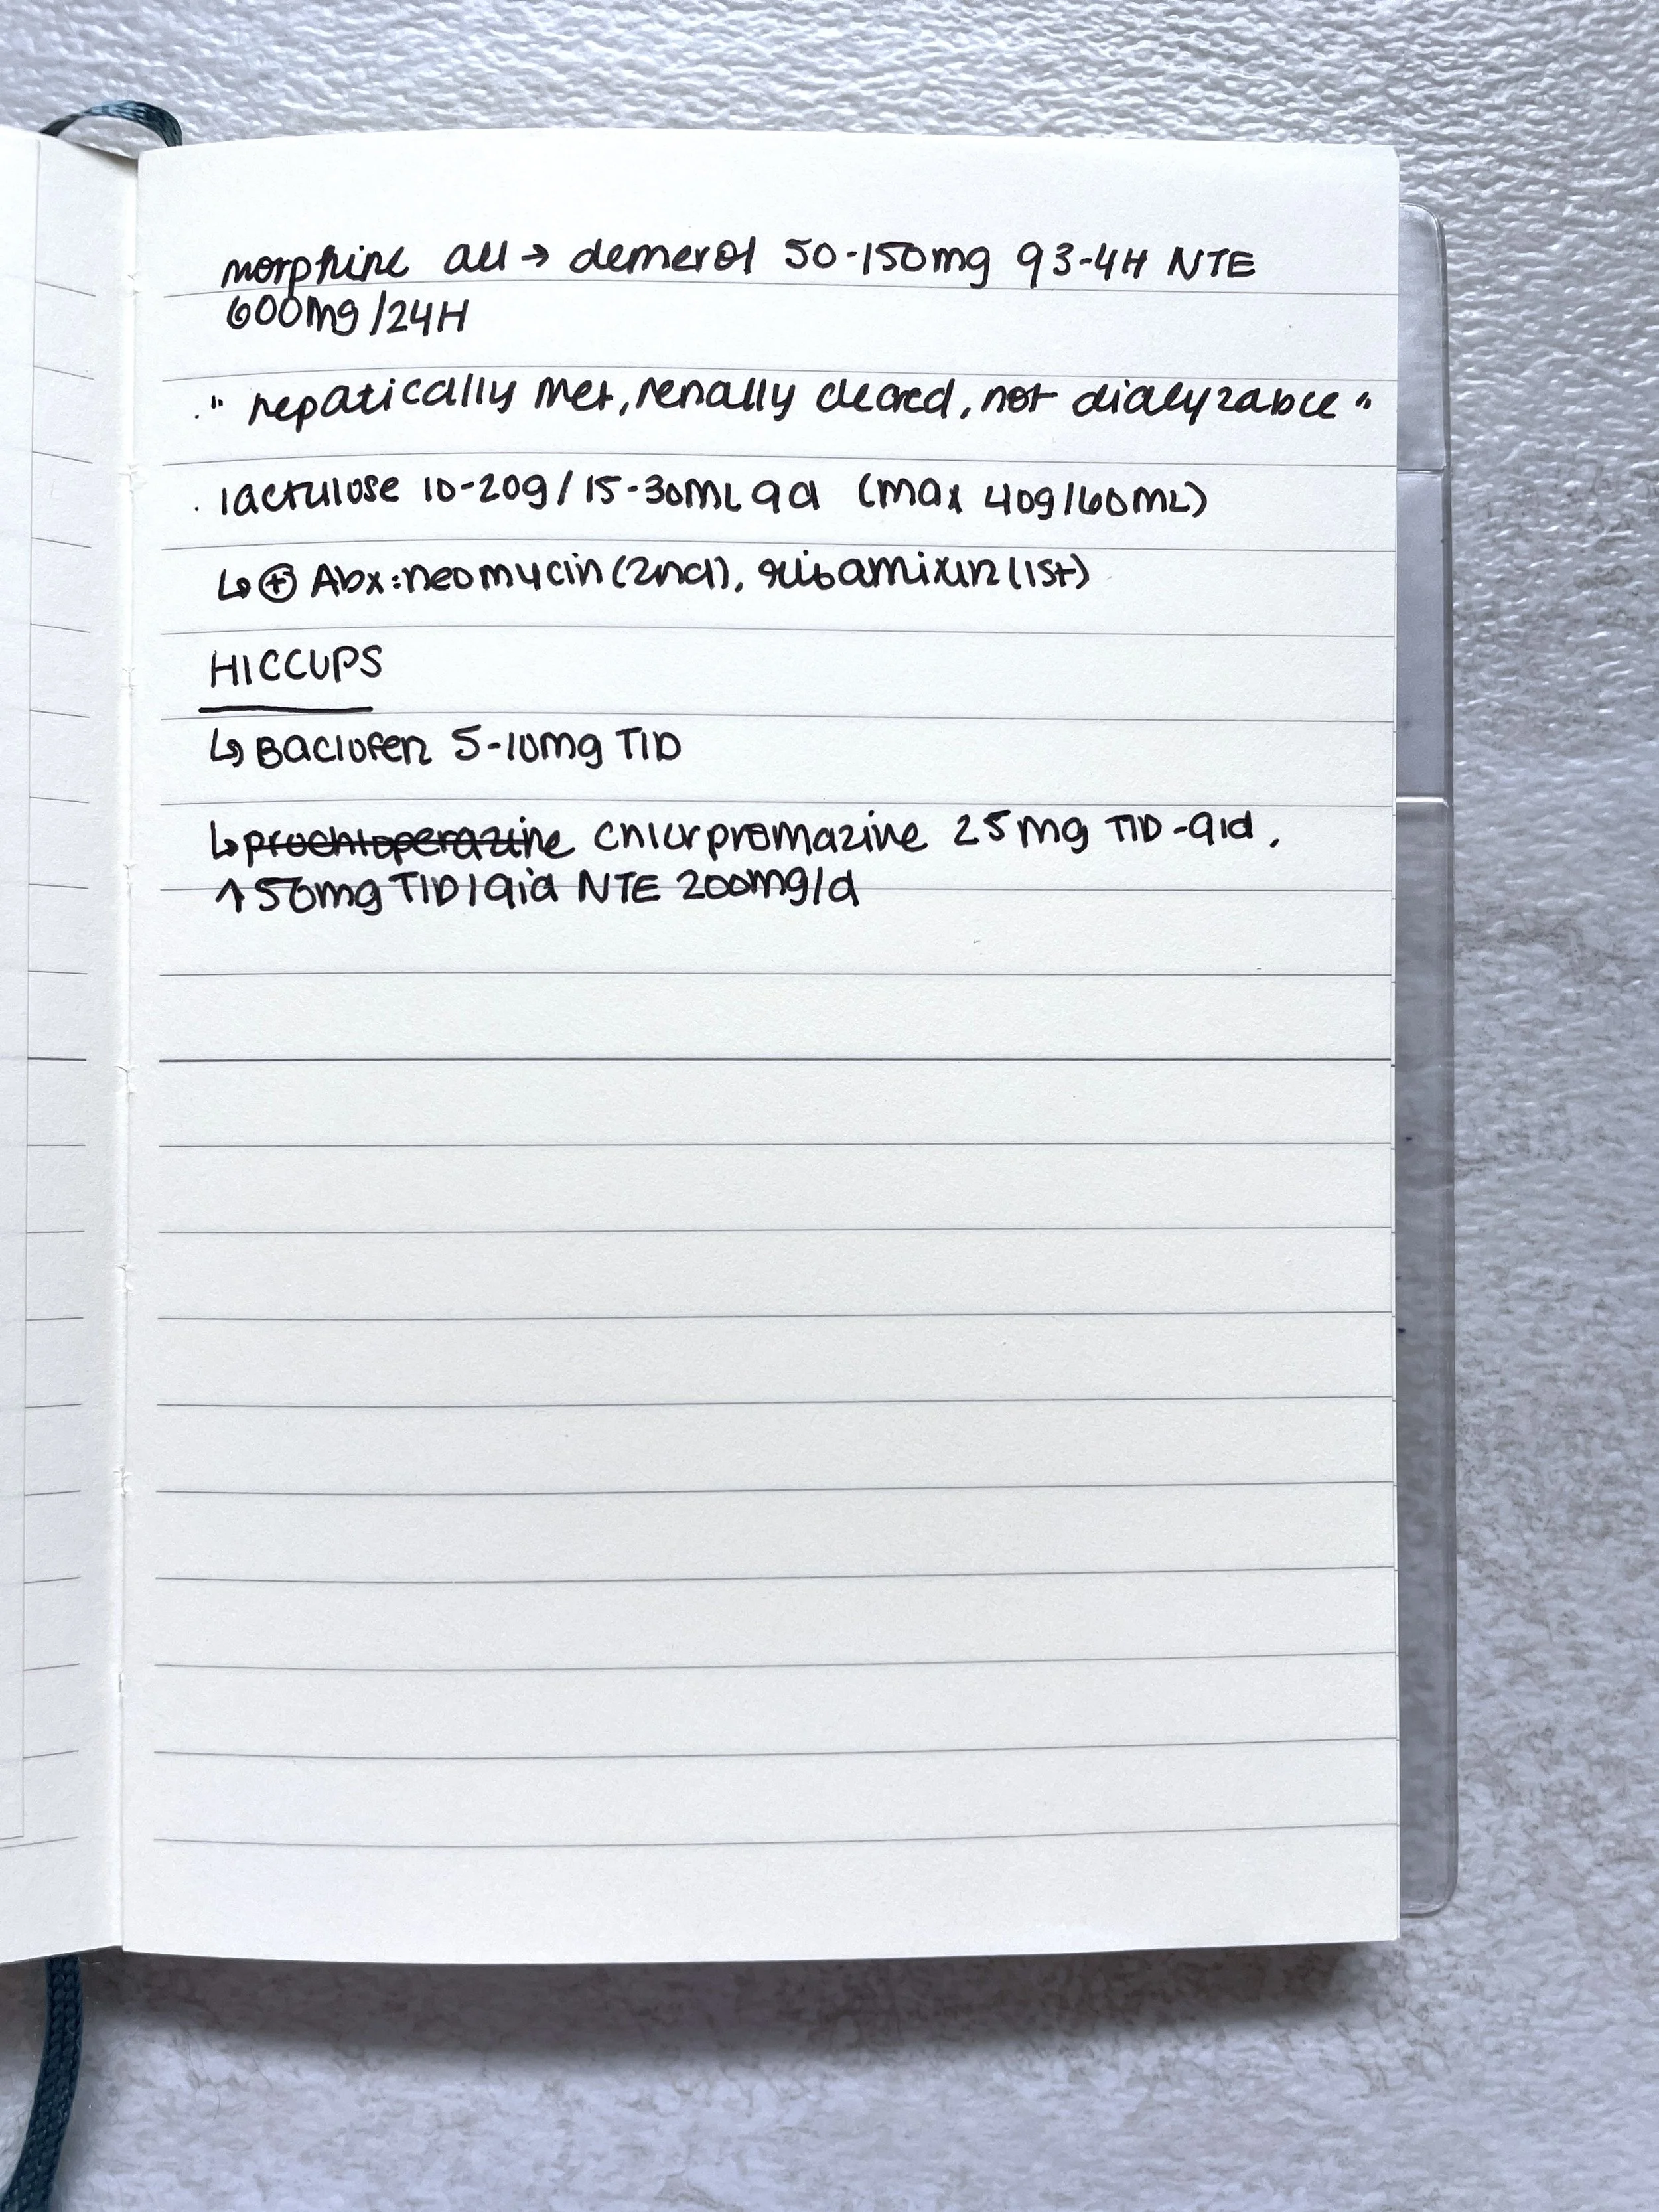 morphine all → demerol 50-150mg q3-4H NTE
600mg/24H
. " hepatically met, renally cleared, not dialyzable "
. lactulose 10-20g/15-30mL qd (max 40g/60mL)
↳ ⊕ Abx: neomycin (2nd), ribamixin (1st)
HICCUPS
↳ Baclofen 5-10mg TID
↳ prochloperazine chlorpromazine 25mg TID-qid,
↑ 50mg TID/qid NTE 200mg/d